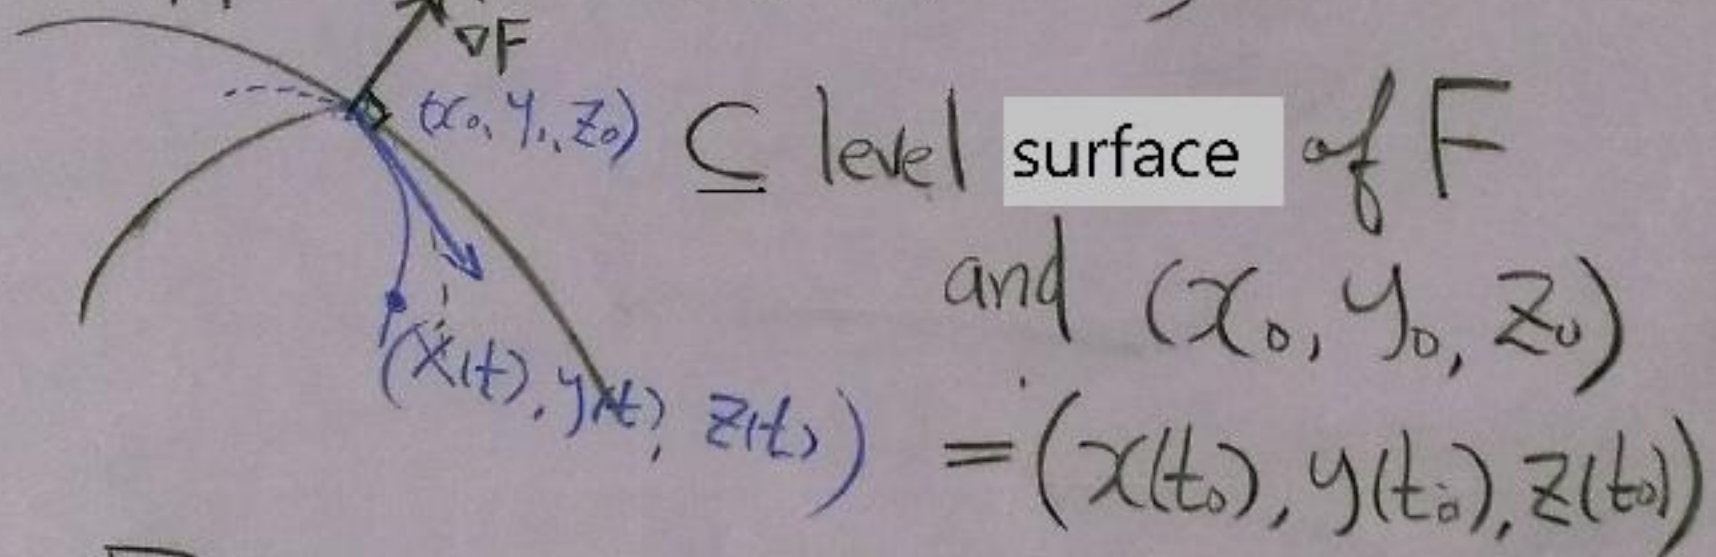 ∇F
(x₀, y₀, z₀) ⊆ level surface of F
and (x₀, y₀, z₀)
(x(t), y(t), z(t))
= (x(t₀), y(t₀), z(t₀))